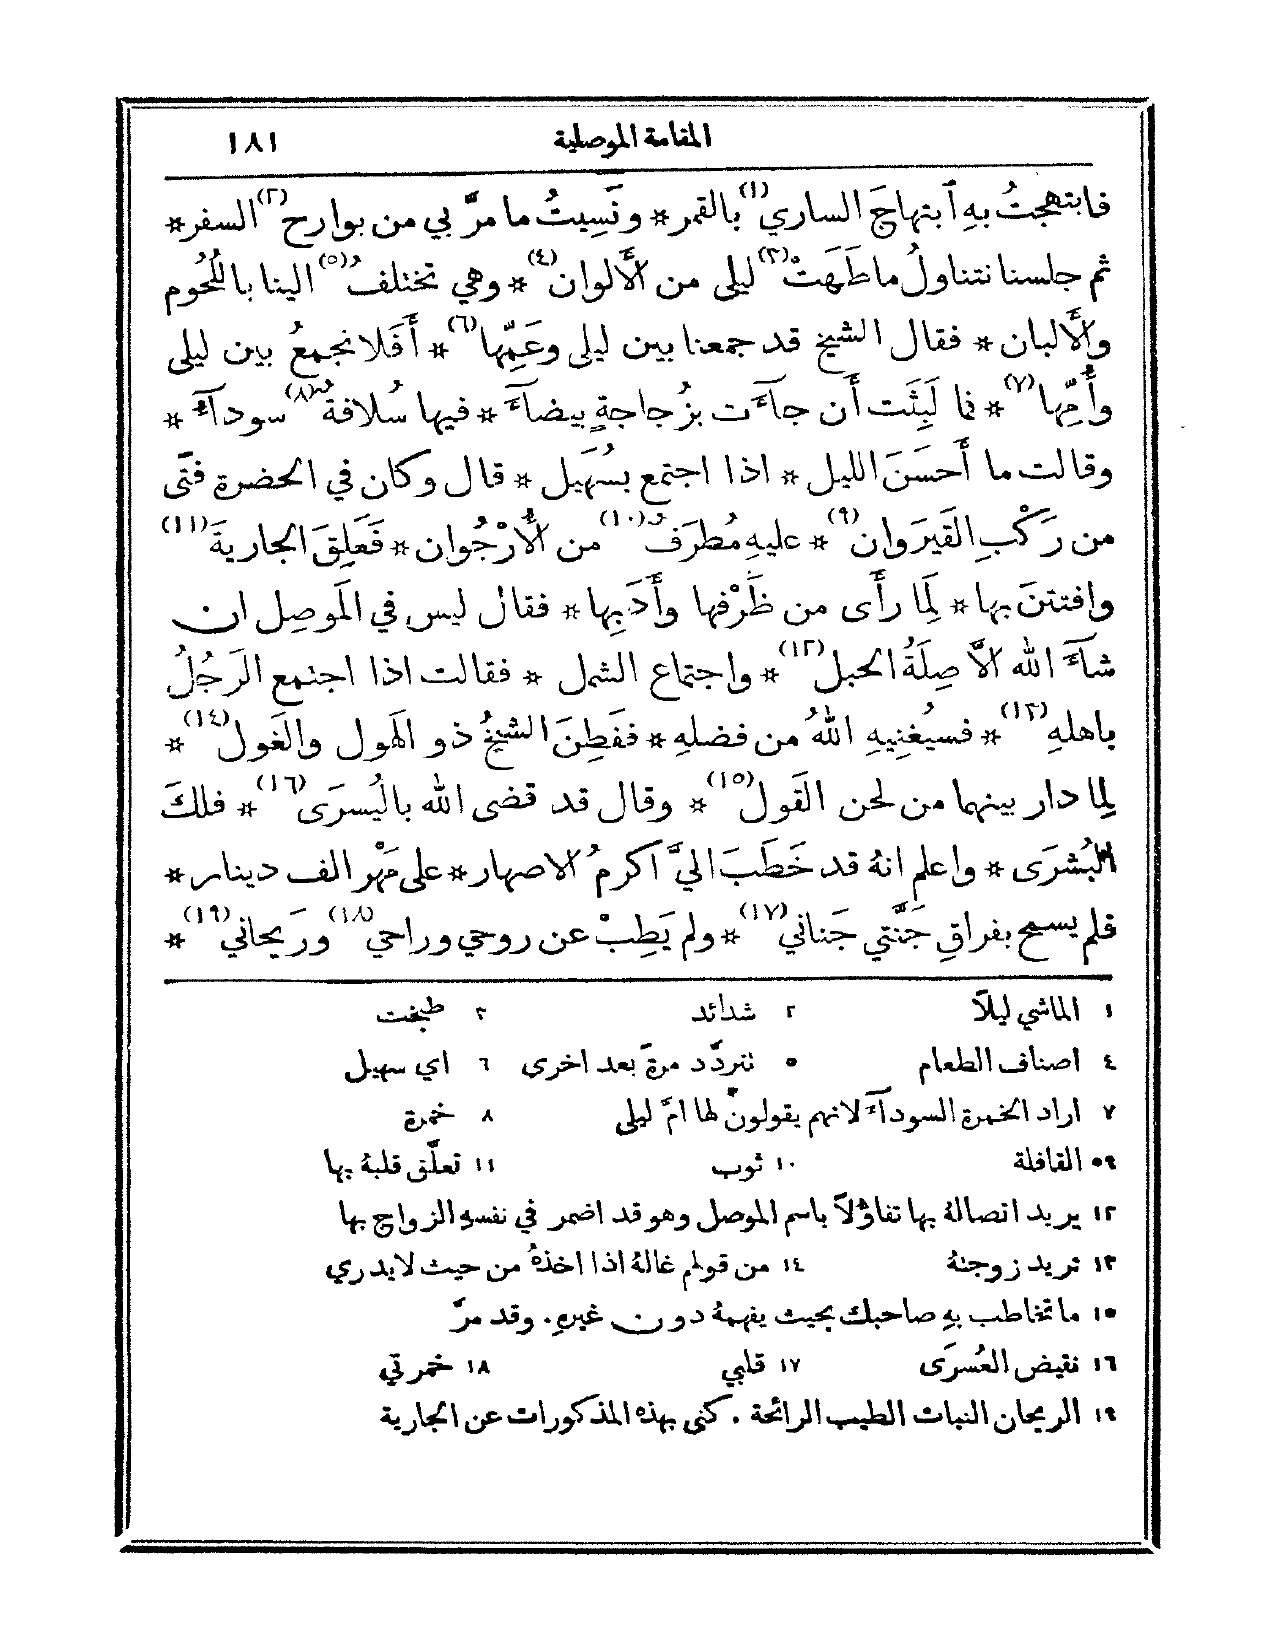 المقامة الموصلية ١٨١
فابتهجتُ بهِ ٱبتهاجَ الساري(١) بالقمر * ونَسِيتُ ما مرَّ بي من بوارح(٢) السفر *
ثم جلسنا نتناولُ ما طَهَتْ(٣) ليلى من الأَلوان(٤) * وهي تختلفُ(٥) الينا باللُحُوم
والأَلبان * فقال الشيخ قد جمعنا بين ليلى وعَمِّها(٦) * أَفَلا نجمعُ بين ليلى
وأُمِّها(٧) * فما لَبِثَت أَن جآءَت بزُجاجةٍ بيضآءَ * فيها سُلافةٌ(٨) سودآءُ *
وقالت ما أَحسَنَ الليل * اذا اجتمع بسُهَيل * قال وكان في الحضرة فتًى
من رَكْبِ القَيرَوان(٩) * عليهِ مُطرَفٌ(١٠) من الأُرْجُوان * فَعَلِقَ الجاريةَ(١١)
وافتتنَ بها * لِما رأَى من ظَرْفِها وأَدَبِها * فقال ليس في المَوصِل ان
شآءَ الله الاَّ صِلَةُ الحبل(١٢) * واجتماع الشمل * فقالت اذا اجتمع الرَجُلُ
باهلهِ(١٣) * فسيُغنِيهِ اللهُ من فضلهِ * ففَطِنَ الشيخُ ذو الهول والغَول(١٤) *
لِما دار بينهما من لحن القَول(١٥) * وقال قد قضى الله باليُسرَى(١٦) * فلكَ
البُشرَى * واعلم انهُ قد خَطَبَ اليَّ اكرمُ الاصهار * على مَهْرِ الف دينار *
فلم يسمح بفراقِ جَنَّتي جَناني(١٧) * ولم يَطِبْ عن روحي وراحي(١٨) ورَيحاني(١٩) *
١ الماشي ليلًا ٢ شدائد ٣ طبخت
٤ اصناف الطعام ٥ تتردَّد مرةً بعد اخرى ٦ اي سهيل
٧ اراد الخمرة السودآءَ لانهم يقولون لها امّ ليلى ٨ خمرة
٩ القافلة ١٠ ثوب ١١ تعلَّق قلبهُ بها
١٢ يريد اتصالهُ بها تفاؤُلًا باسم الموصل وهو قد اضمر في نفسهِ الزواج بها
١٣ تريد زوجتهُ ١٤ من قولهم غالهُ اذا اخذهُ من حيث لا يدري
١٥ ما تخاطب بهِ صاحبك بحيث يفهمهُ دون غيرهِ. وقد مرَّ
١٦ نقيض العُسرَى ١٧ قلبي ١٨ خمرتي
١٩ الريحان النبات الطيب الرائحة. كنى بهذه المذكورات عن الجارية